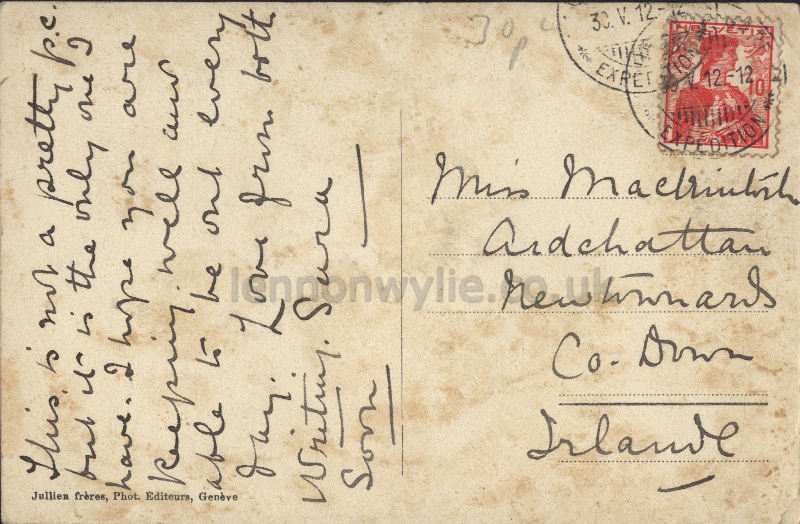 This is not a pretty p.c.
but it is the only one I
have. I hope you are
keeping well and
able to be out every
day. Love from both
Writing. Sara
Soon
Jullien frères, Phot. Editeurs, Genève
30p
30. V. 12.-12
EXPEDITION
HELVETIA
10
V. 12.-12
EXPEDITION
Miss Mackintosh
Ardchattan
Newtownards
Co. Down
Irlande
lennonwylie.co.uk